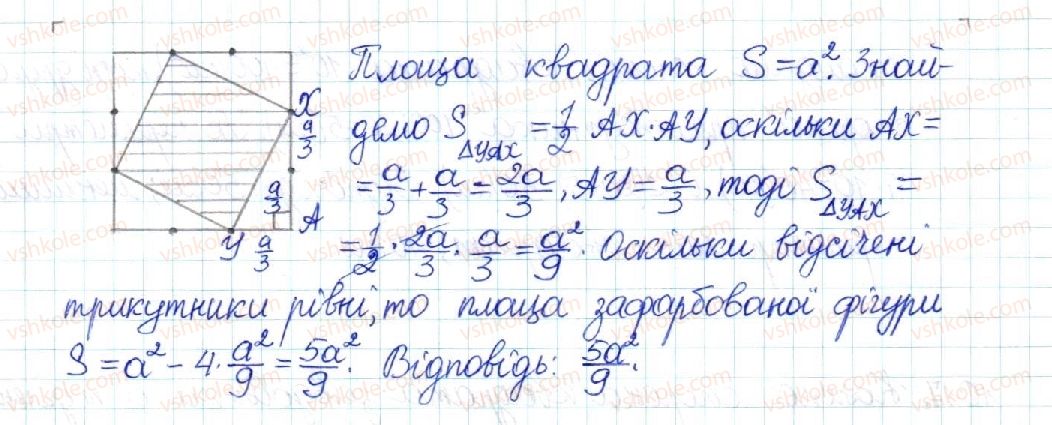 Площа квадрата S = a². Знай-
X
a/3
демо S△YAX = 1/2 AX·AY, оскільки AX =
= a/3 + a/3 = 2a/3, AY = a/3, тоді S△YAX =
a/3
A
Y a/3
= 1/2 · 2a/3 · a/3 = a²/9. Оскільки відсічені
трикутники рівні, то площа зафарбованої фігури
S = a² − 4 · a²/9 = 5a²/9. Відповідь: 5a²/9.
vshkole.com